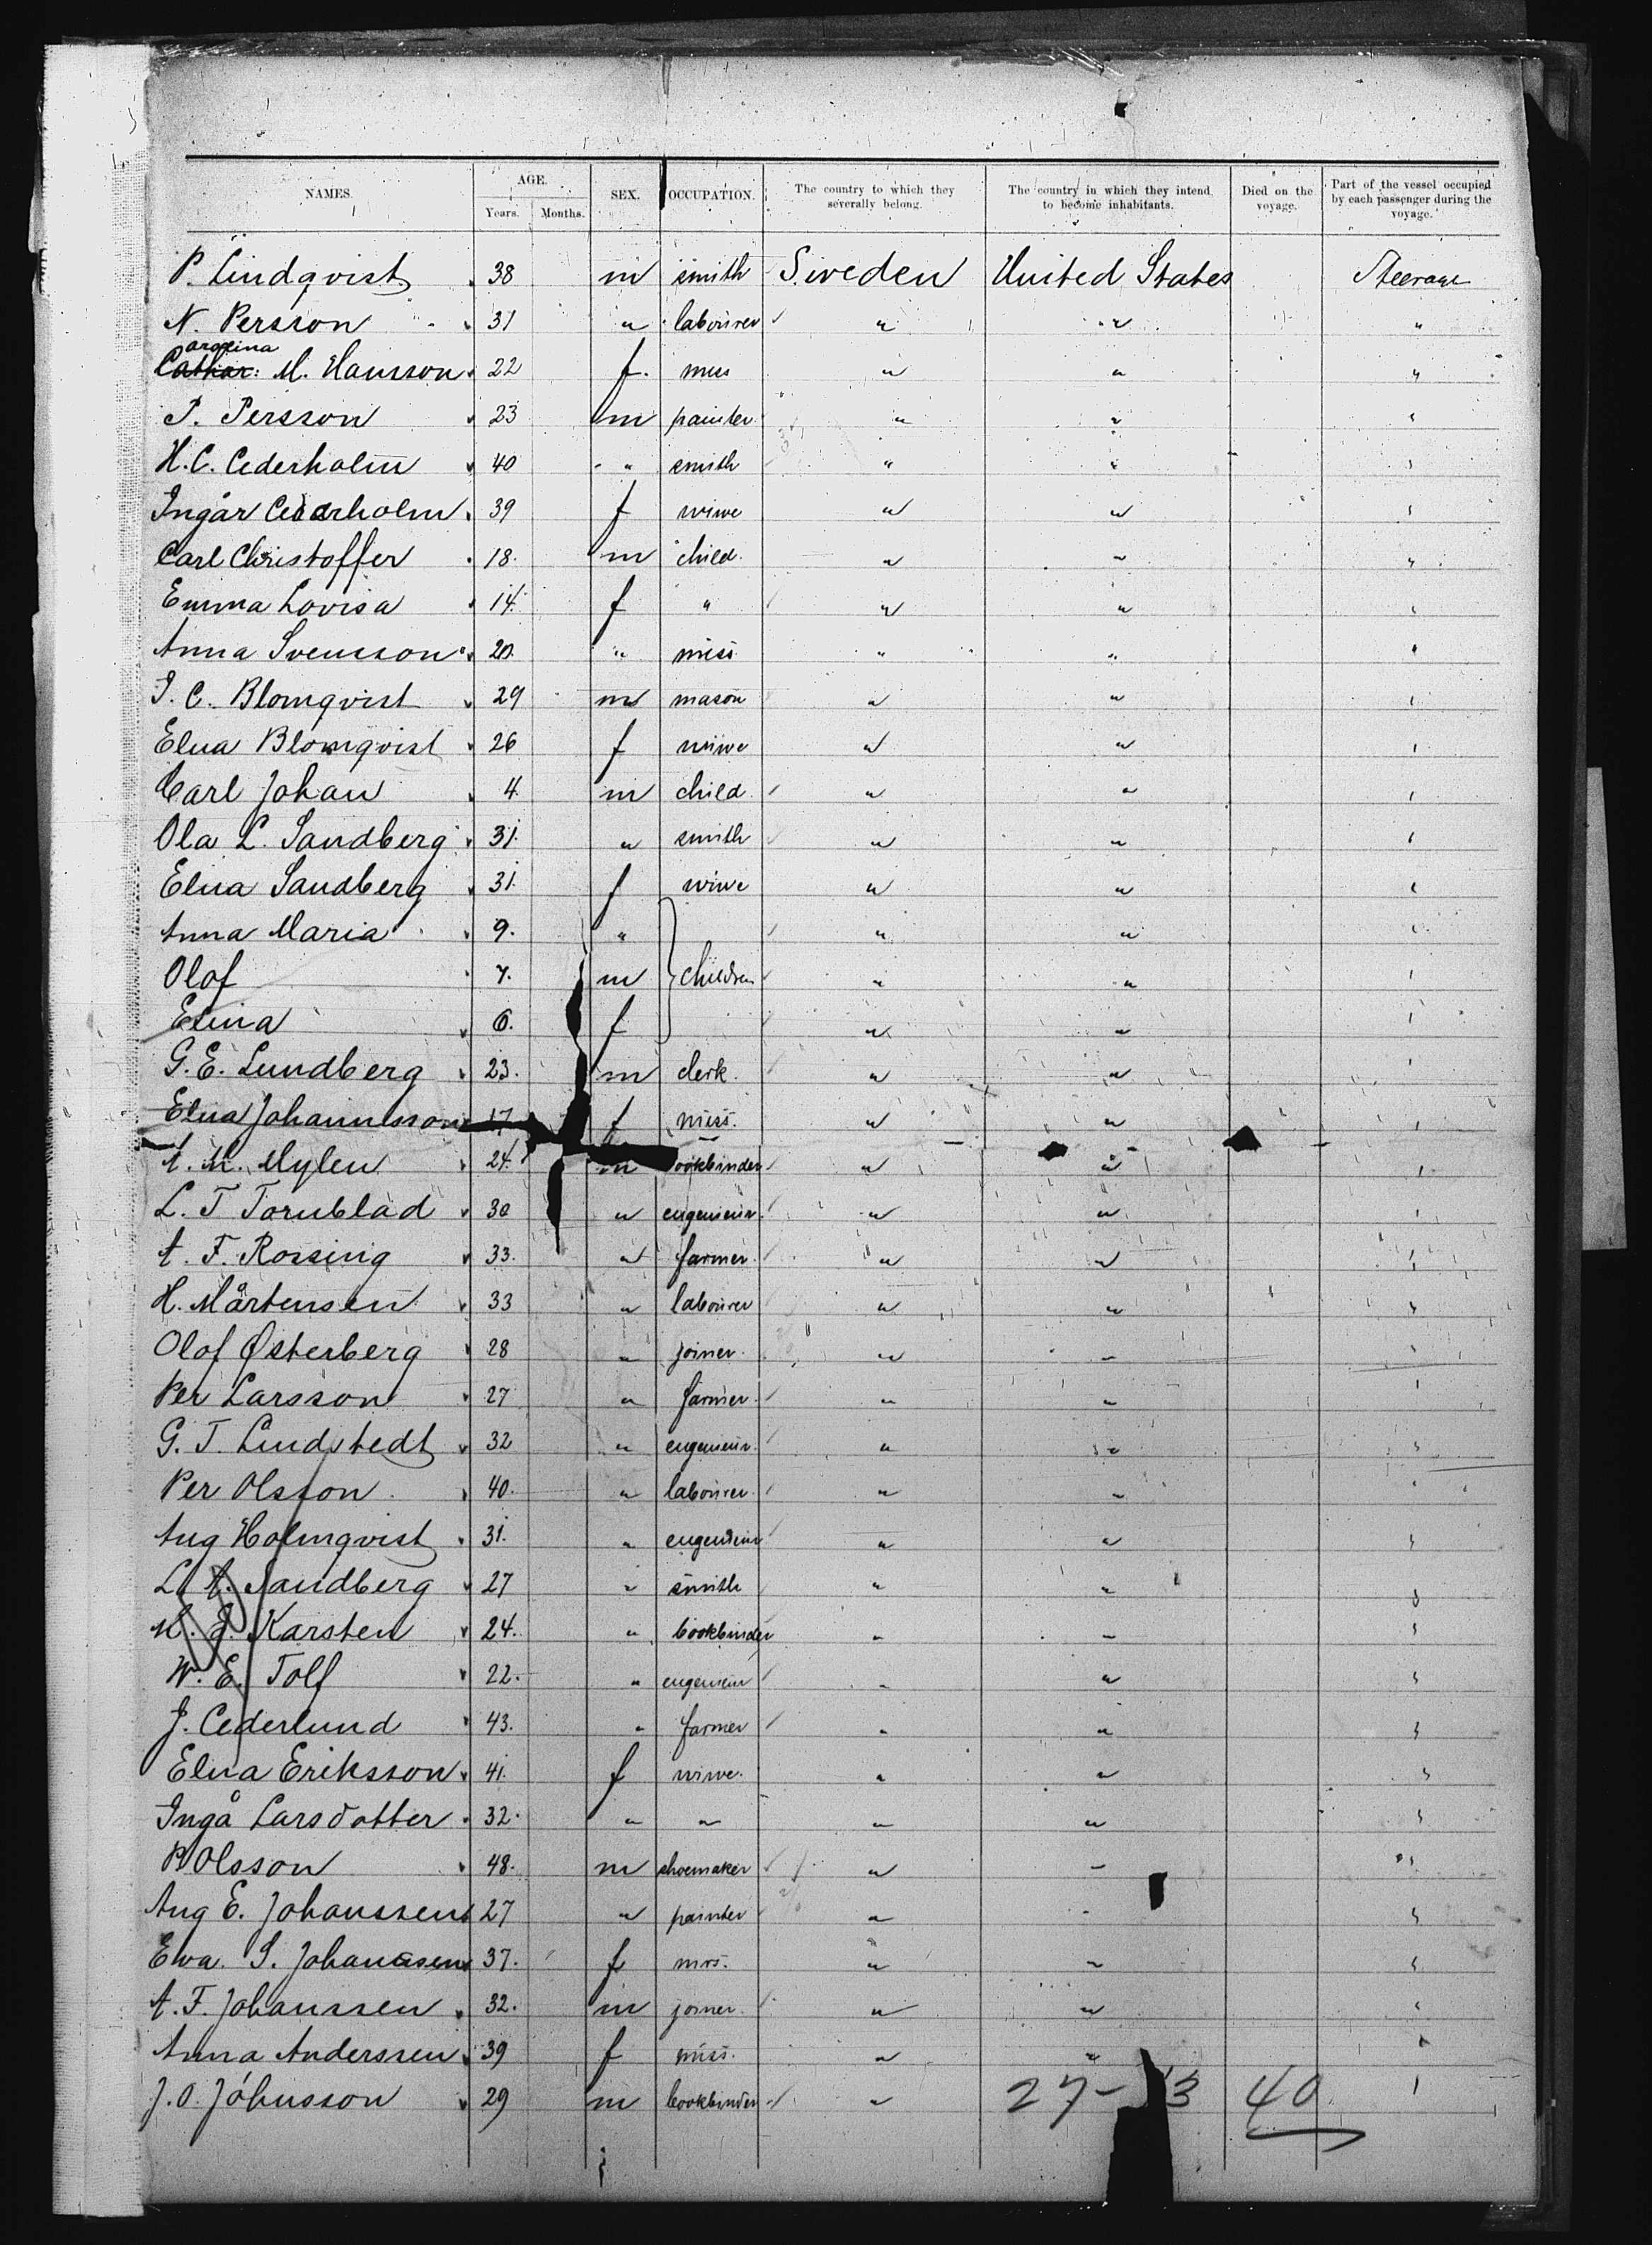 NAMES. AGE. SEX. OCCUPATION. The country to which they severally belong. The country in which they intend to become inhabitants. Died on the voyage. Part of the vessel occupied by each passenger during the voyage.
Years. Months.
P. Lindqvist 38 m smith Sweden United States Steerage
N. Persson 31 " labourer " " "
Carolina Cathar: M. Hansson 22 f. miss " " "
P. Persson 23 m painter " " "
H. C. Cederholm 40 " smith " " "
Ingår Cederholm 39 f wiwe " " "
Carl Christoffer 18. m child. " " "
Emma Lovisa 14. f " " " "
Anna Svensson 20. " miss " " "
J. C. Blomqvist 29 m mason " " "
Elna Blomqvist 26 f wiwe " " "
Carl Johan 4 m child. " " "
Ola L. Sandberg 31. " smith " " "
Elna Sandberg 31. f wiwe " " "
Anna Maria 9. " " " "
Olof 7. m children " " "
Elina 6. f " " "
G. E. Lundberg 23. m clerk. " " "
Elna Johannesson 17 f miss. " " "
A. M. Mylen 24. m bookbinder " " "
L. T Tornblad 30 " engenieur. " " "
A. F. Rossing 33. " farmer. " " "
H. Mårtensen 33 " labourer " " "
Olof Østerberg 28 " joiner. " " "
Per Larsson 27 " farmer. " " "
G. T. Lindstedt 32 " engenieur. " " "
Per Olsson 40. " labourer. " " "
Aug Holmqvist 31. " engenieur " " "
L. A. Sandberg 27 " smith " " "
K. J. Karsten 24. " bookbinder " " "
W. E. Tolf 22. " engenieur " " "
J. Cederlund 43. " farmer " " "
Elna Eriksson 41. f wiwe. " " "
Ingå Larsdotter 32. " " " " "
P. Olsson 48. m shoemaker " " "
Aug E. Johanssen 27 " painter " " "
Ewa. S. Johanssen 37. f mrs. " " "
A. F. Johanssen 32. m joiner. " " "
Anna Anderssen 39 f miss. " " "
J. O. Johnsson 29 m bookbinder " 27-13 40 "